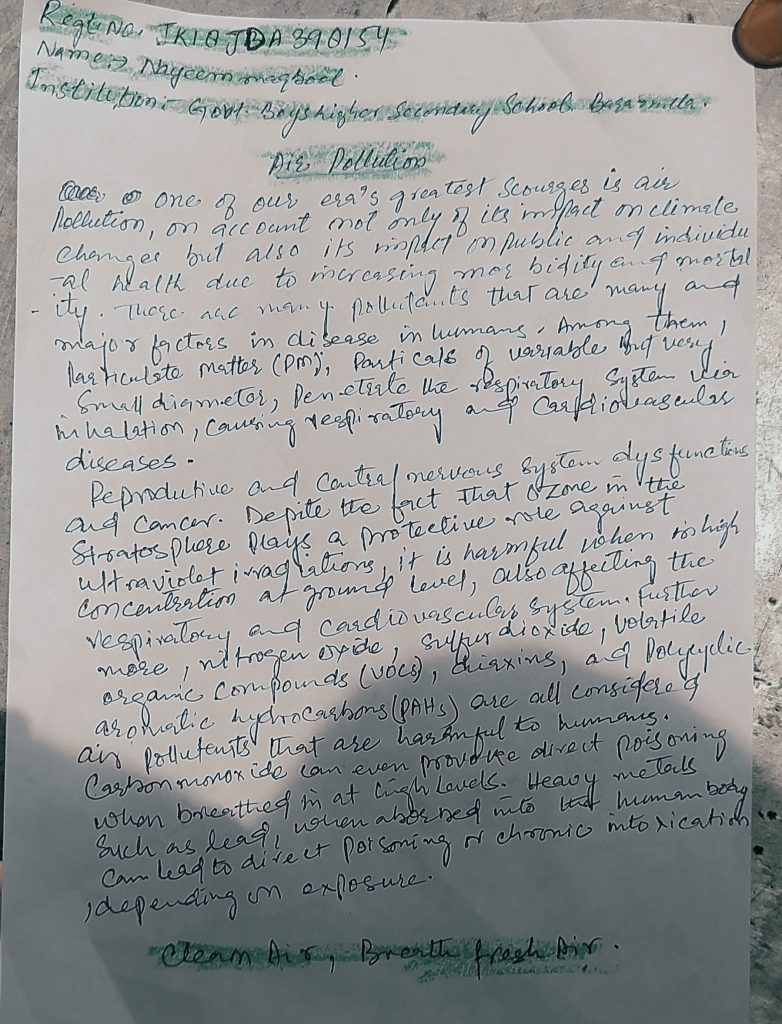 Regt No. JK18JDA390154
Name:→ Nayeem maqbool.
Institution:- Govt. Boys higher Secondary School Baramulla.
Air Pollution
one of our era's greatest Scourges is air
Pollution, on account not only of its impact on climate
Changes but also its impact on public and individu
-al health due to increasing mor bidity and mortal
-ity. There are many pollutants that are many and
major factors in disease in humans. Among them,
Particulate matter (PM), Particals of variable but very
Small diameter, Penetrate the respiratory System via
inhalation, causing respiratory and Cardiovascular
diseases.
Reproductive and central nervous System dysfunctions
and Cancer. Depite the fact that Ozone in the
Stratosphere Plays a protective role against
ultraviolet irradiations, it is harmful when in high
Concentration at ground Level, also affecting the
respiratory and cardiovascular System. Further
more, nitrogen oxide, sulfur dioxide, volatile
organic Compounds (VOCs), dioxins, and Polycyclic
aromatic hydrocarbons (PAHs) are all considered
air Pollutents that are harmful to humans.
Carbon monoxide can even provoke direct poisoning
when breathed in at high Levels. Heavy metals
Such as lead, when absorbed into the human body
Can Lead to direct poisoning or chronic intoxication
, depending on exposure.
Clean Air, Breath fresh Air.